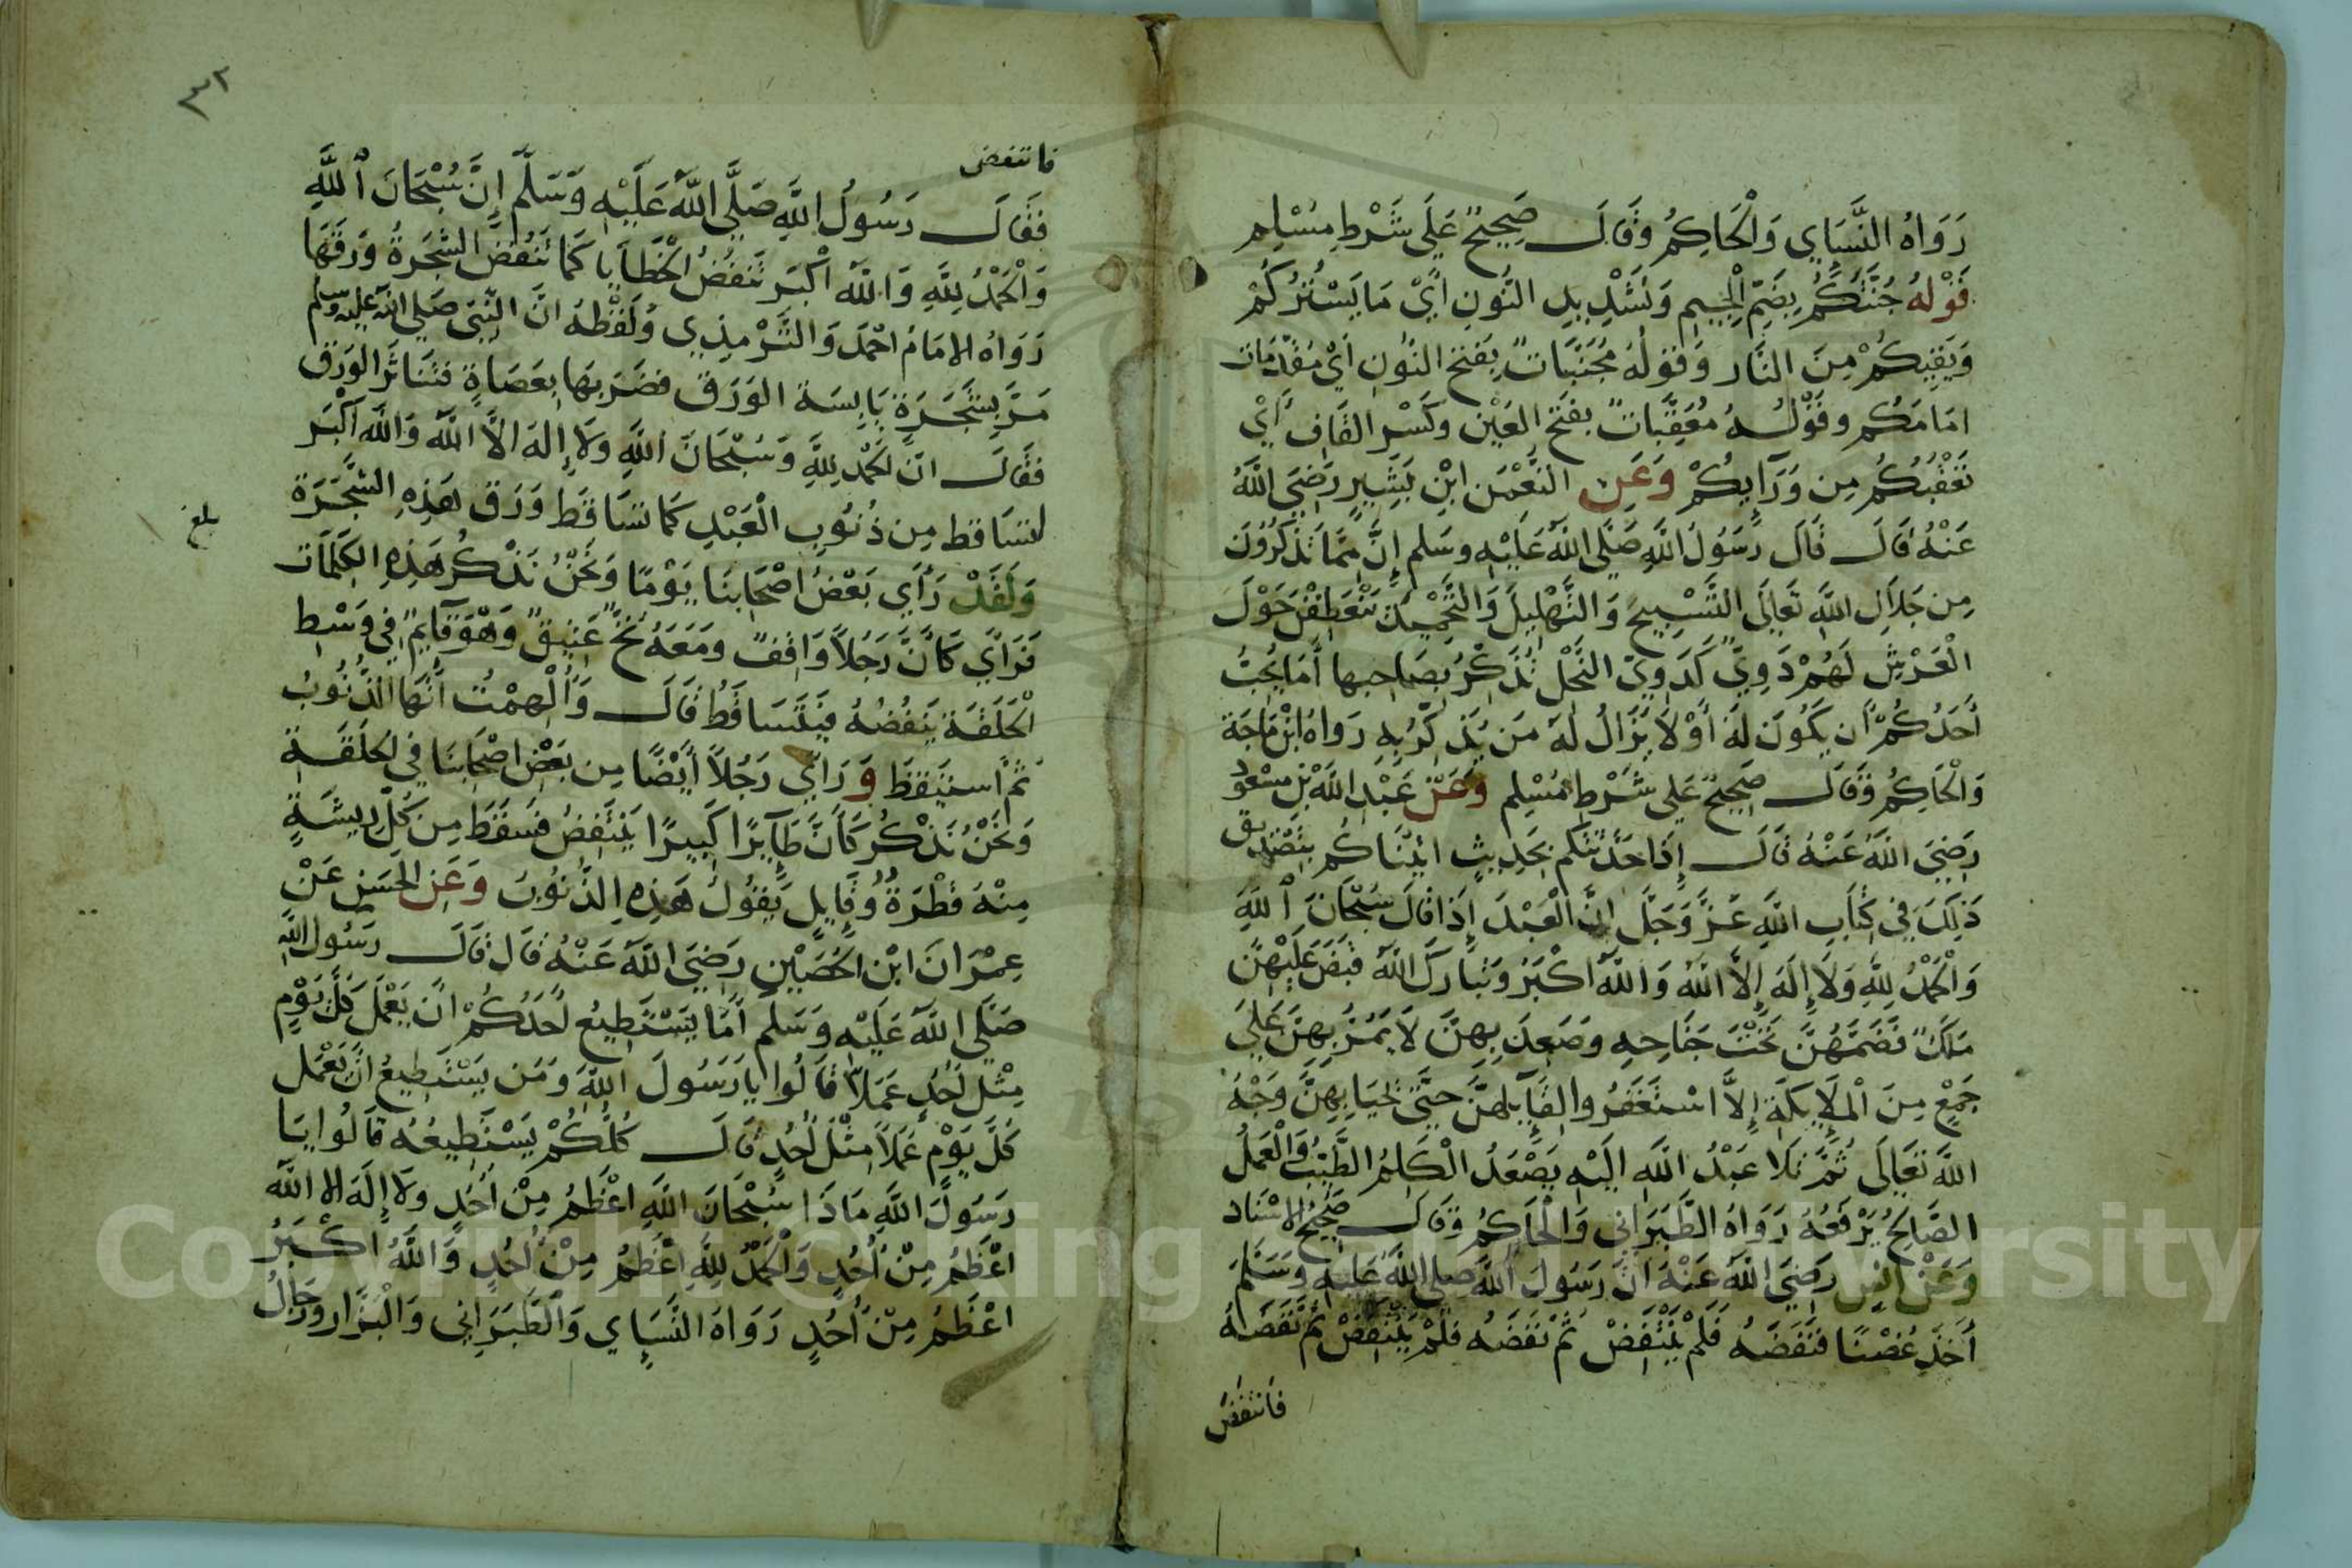 رَوَاهُ النَّسَاي وَالْحَاكِمُ وَقَالَ صَحِيحٌ عَلَي شَرْطِ مُسْلِم
قَوْلهُ جُنَّتَكُمْ بِضَمِّ الْجِيمِ وَتَشْدِيدِ النُّونِ أَيْ مَا يَسْتُرُكُمْ
وَيَقِيكُمْ مِنَ النَّار وَقَولُهُ مُجَنَّبَاتٌ بِفَتحِ النُونِ أَيْ مُقَدَّمَات
امَامَكُم وقَوْلُهُ مُعَقِّبَاتٌ بفَتحِ العَيْن وكَسْرِ القَافِ أَيْ
تَعْقُبُكُم مِن وَرَآيِكُمْ وَعَنِ النُّعْمٰنِ ابْنِ بَشِيرٍ رَضِيَ اللَّهُ
عَنْهُ قَالَ قَالَ رَسُولُ اللَّهِ صَلَّى اللَّهُ عَلَيْهِ وسَلم إِنَّ مِمَّا تَذْكُرُونَ
مِن جَلَالِ اللَّهِ تَعَالَى التَّسْبِيحَ وَالتَّهْلِيلَ وَالتَّحْمِيدَ يَنْعَطِفْنَ حَوْلَ
الْعَرْشِ لَهُمْ دَوِيٌّ كَدَوِيِّ النَّحْلِ تُذَكِّرُ بِصَاحِبِهَا أَمَا يُحِبُّ
أَحَدُكُمْ أَن يَكُونَ لَهُ أَوْ لَا يَزَالُ لَهُ مَن يُذَكِّرُ بِهِ رَوَاهُ ابْنُ مَاجَة
وَالْحَاكِمُ وَقَالَ صَحِيحٌ عَلَى شَرْطِ مُسْلِم وَعَنْ عَبْدِ اللَّهِ بْنِ مسْعُود
رَضِيَ اللَّهُ عَنْهُ قَالَ إِذَا حَدَّثتكم بحَدِيثٍ اتَيْنَاكُم بِتَصْدِيق
ذَلِكَ فِي كِتَابِ اللَّهِ عَزَّ وَجَلَّ إِنَّ الْعَبْدَ إِذَا قَالَ سُبْحَانَ اللَّهِ
وَالْحَمْدُ لِلَّهِ وَلَا إِلَهَ إِلَّا اللَّهُ وَاللَّهُ اكْبَرُ وَتَبَارَكَ اللَّهُ قَبَضَ عَلَيْهِنَّ
مَلَكٌ فَضَمَّهُنَّ تَحْتَ جَنَاحِهِ وصَعِدَ بِهِنَّ لَا يَمُرُّ بِهِنَّ عَلَى
جَمْعٍ مِنَ الْمَلَايِكَةِ إِلَّا اسْتَغْفَرُوا لِقَآيِلِهِنَّ حَتَّى يُحَيَا بِهِنَّ وَجْهُ
اللَّهِ تَعَالَى ثُمَّ تَلَا عَبْدُ اللَّهِ الَيْهِ يَصْعَدُ الْكَلِمُ الطَّيِّبُ وَالْعَمَلُ
الصَّالِحُ يَرْفَعُهُ رَوَاهُ الطَّبَرَانِى وَالْحَاكِمُ وَقَالَ صَحِيحُ الاسْنَاد
وَعَنْ انَسٍ رَضِيَ اللَّهُ عَنْهُ انَّ رَسُولَ اللَّهِ صلى اللَّهُ عَلَيْهِ وَسَلَّمَ
أَخَذَ غُصْنًا فَنَفَضَهُ فَلَمْ يَنْتَفِضْ ثُمَّ نَفَضَهُ فَلَمْ يَنْتَفِضْ ثُمَّ نَفَضَهُ
فَانْتَفَضَ
٣٢
فانتفض
فَقَالَ رَسُولُ اللَّهِ صَلَّى اللَّهُ عَلَيْهِ وَسَلَّمَ إِنَّ سُبْحَانَ اللَّهِ
وَالْحَمْدُ لِلَّهِ وَاللَّهُ اكْبَر تَنفُضُ الْخَطَايَا كَمَا تَنفُضُ الشَّجَرَةُ وَرَقَهَا
رَوَاهُ الامَامُ احْمَدَ وَالتِّرْمِذِي وَلَفْظهُ انَّ النَّبِيَّ صَلى اللَّهُ عَلَيْهِ وسَلم
مَرَّ بِشَجَرَةٍ يَابِسَة الوَرَق فضَرَبَهَا بِعَصَاةٍ فتَنَاثَرَ الوَرَق
فقَالَ انَّ الحَمْدَ لِلَّهِ وَسُبْحَانَ اللَّهِ وَلَا إِلَهَ الَّا اللَّهُ وَاللَّهُ اكْبَر
لتسَاقط مِن ذُنُوبِ الْعَبْدِ كَمَا تسَاقَط وَرَق هَذِهِ الشَّجَرَة
بلغ
وَلَقَدْ رَأَي بَعْضُ اصْحَابِنَا يَوْمًا وَنَحْنُ نَذْكُر هَذِهِ الكَلِمَات
فَرَاي كَانَّ رَجُلًا وَاقِفٌ ومَعَهُ نخٌّ عَتِيقٌ وَهُوَ قَآيِمٌ فِي وَسْطِ
الْحَلَقَة يَنفُضُهُ فيَتَسَاقَطُ قَالَ وَأُلْهِمْتُ أَنَّهَا الذُّنُوبُ
ثُم اسْتَيْقَظَ وَرَايَ رَجُلاً أَيْضًا مِن بَعْضِ اصْحَابِنَا فِي الحَلَقَة
وَنَحْنُ نَذْكُر كَأَنَّ طَآيِرًا كَبِيرًا يَنْتَفِضُ فسَقَطَ مِن كُلِّ رِيشَةٍ
مِنْهُ قَطْرَةٌ وقَايِل يَقُولُ هَذِهِ الذُّنُوبُ وَعَنِ الحَسَنِ عَنْ
عِمْرَانَ ابْنِ الحُصَيْنِ رَضِيَ اللَّهُ عَنْهُ قَالَ قَالَ رسُولُ اللَّهِ
صَلَّى اللَّهُ عَلَيْهِ وَسَلم أَمَا يَسْتَطِيعُ أَحَدُكُمْ أَن يَعْمَلَ كُلَّ يَوْمٍ
مِثْلَ أُحُدٍ عَمَلاً قَالُوا يَا رَسُولَ اللَّهِ وَمَن يَسْتَطِيعُ انْ يَعْمَل
كُلَّ يَوْمٍ عَمَلاً مِثْلَ أُحُدٍ قَالَ كُلُّكُمْ يَسْتَطِيعُهُ قَالُوا يَا
رَسُولَ اللَّهِ مَاذَا سُبْحَانَ اللَّهِ اعْظَمُ مِنْ أُحُدٍ ولَا إِلَهَ الا اللَّهُ
اعْظَمُ مِنْ أُحُدٍ وَالْحَمْدُ لِلَّهِ اعْظَمُ مِنْ أُحُدٍ وَاللَّهُ اكْبَرُ
اعْظَمُ مِنْ أُحُدٍ رَوَاهُ النَّسَاي وَالطَّبَرَانِي وَالْبَزَّار ورِجَالُ
Copyright © King Saud University